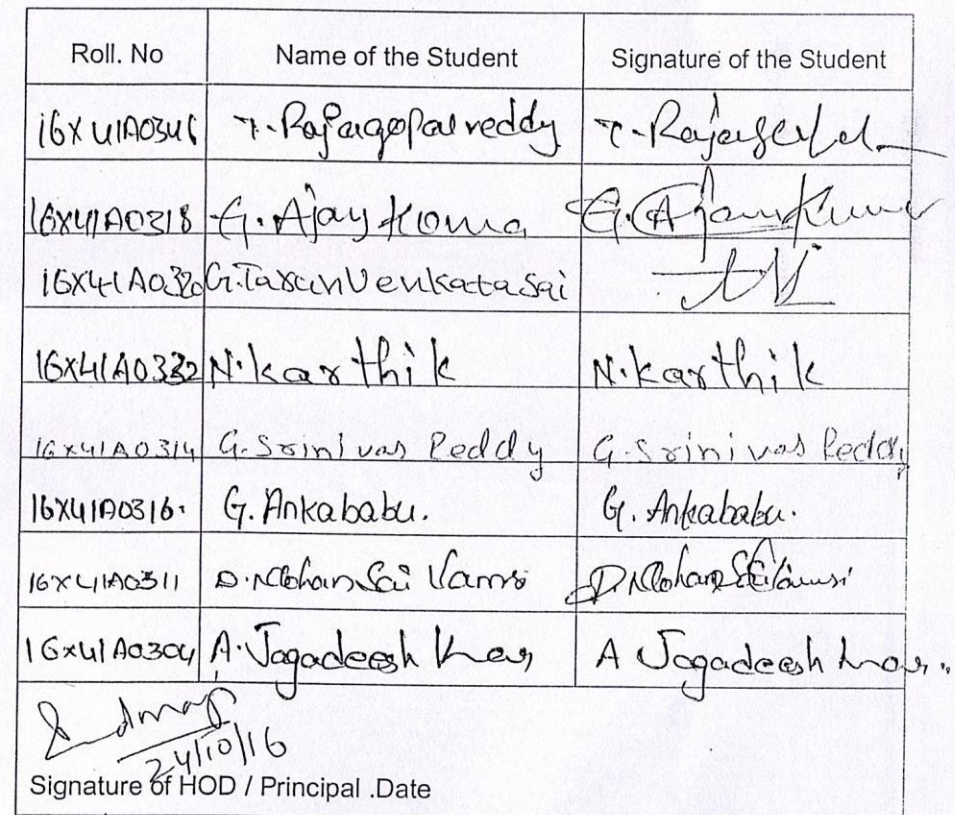 Roll. No Name of the Student Signature of the Student
16X41A0346 T. Rajagopal reddy T. Rajagopal
16X41A0318 G. Ajay Kuma G. Ajay Kumar
16X41A0320 G. Tarun Venkata Sai
16X41A0332 N. karthik N. karthik
16X41A0314 G. Srinivas Reddy G. Srinivas Reddy
16X41A0316. G. Ankababu. G. Ankababu.
16X41A0311 D. Mohan Sai Vamsi D. Mohan Sai Vamsi
16X41A0304 A. Jagadeesh A Jagadeesh
24/10/16
Signature of HOD / Principal .Date